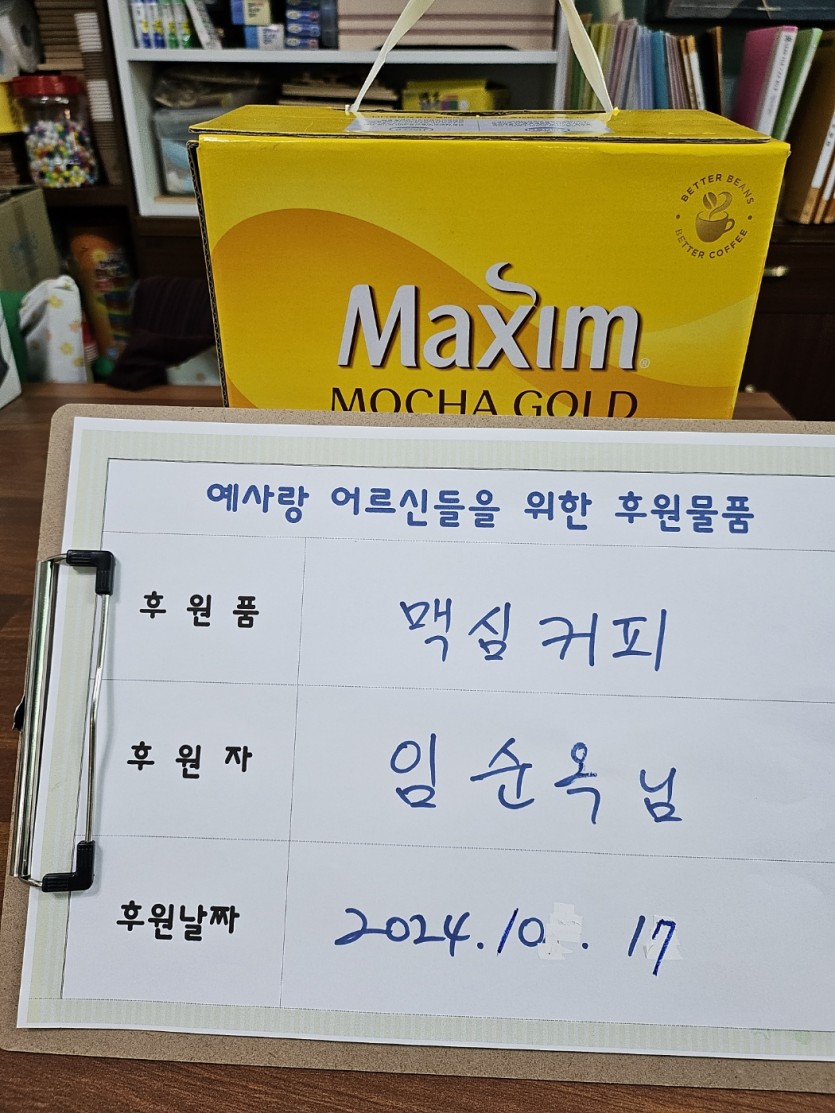 BETTER BEANS
BETTER COFFEE
Maxim
MOCHA GOLD
예사랑 어르신들을 위한 후원물품
후원품 맥심커피
후원자 임순옥 님
후원날짜 2024.10 . 17